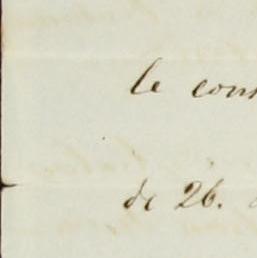 le cons
de 26.